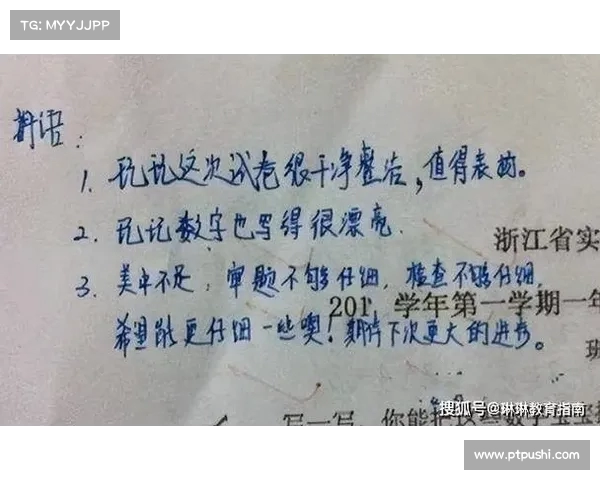 TG: MYYJJPP
语：
1. 这次试卷很干净整洁，值得表扬。
2. 数字也写得很漂亮.
浙江省实
3. 美中不足：审题不够仔细，检查不够仔细，
201 学年第一学期一年
希望能更仔细一些噢！期待下次更大的进步。
班
搜狐号@琳琳教育指南
写一写，你能把这些数字宝宝
www.ptpushi.com